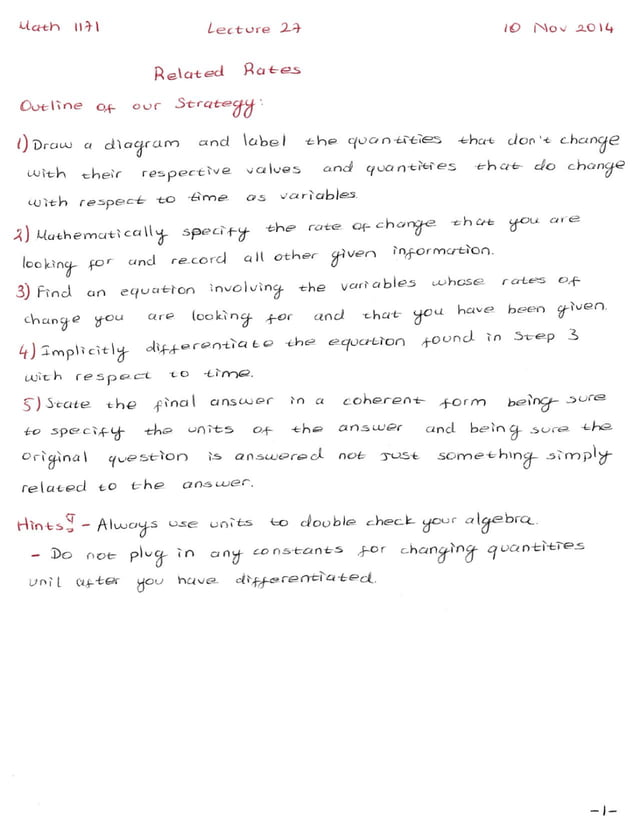 Math 1171 Lecture 27 10 Nov 2014
Related Rates
Outline of our Strategy:
1) Draw a diagram and label the quantities that don't change
with their respective values and quantities that do change
with respect to time as variables.
2) Mathematically specify the rate of change that you are
looking for and record all other given information.
3) Find an equation involving the variables whose rates of
change you are looking for and that you have been given.
4) Implicitly differentiate the equation found in Step 3
with respect to time.
5) State the final answer in a coherent form being sure
to specify the units of the answer and being sure the
original question is answered not just something simply
related to the answer.
Hints: - Always use units to double check your algebra.
- Do not plug in any constants for changing quantities
unil after you have differentiated.
-1-